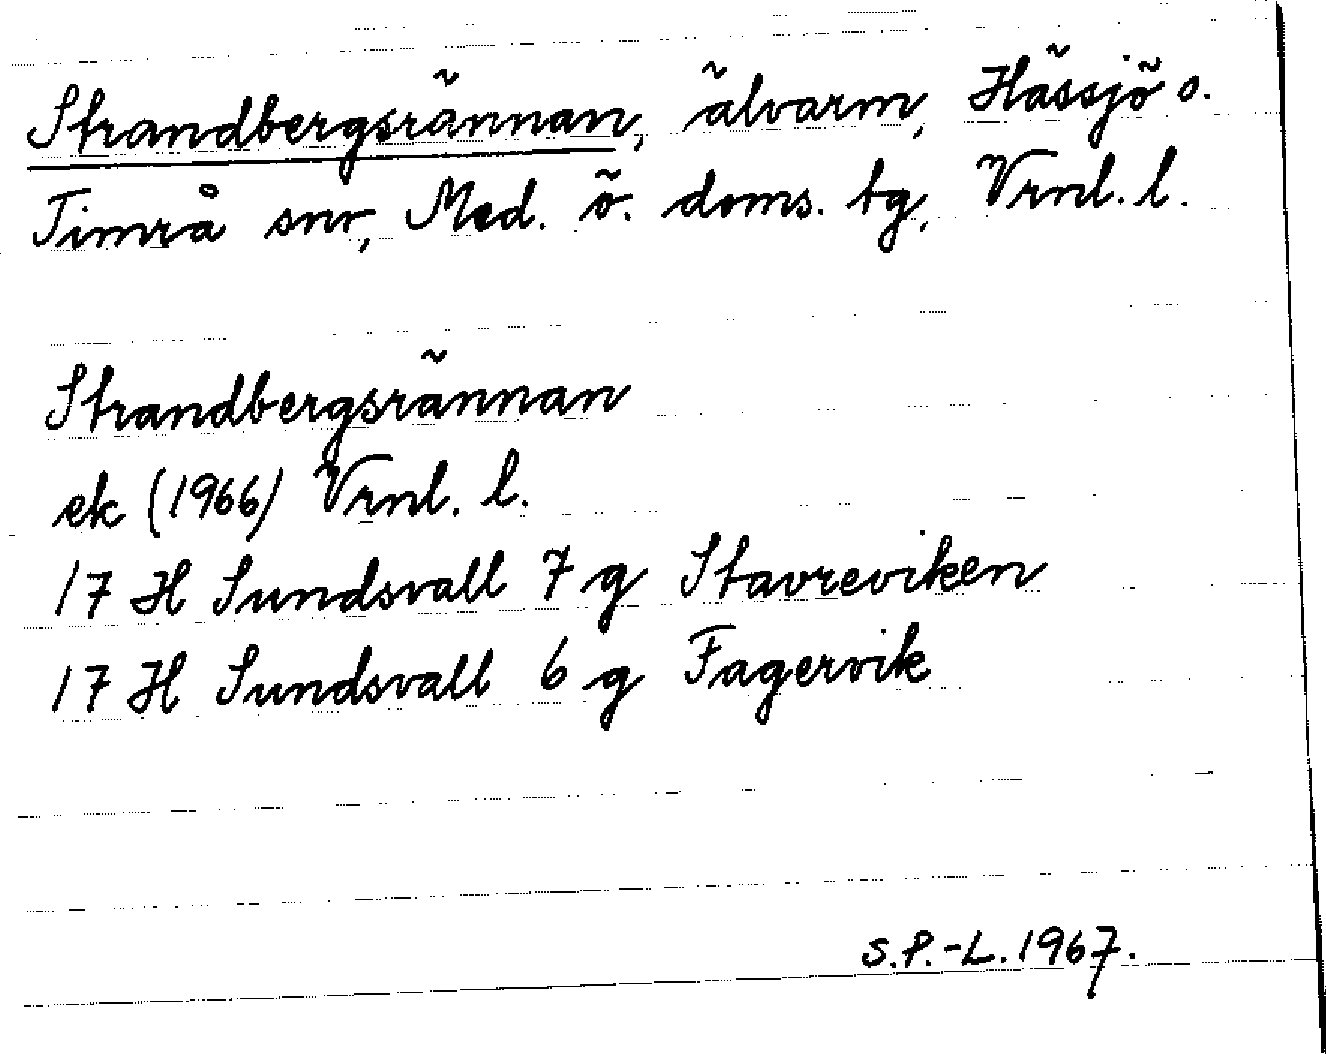 Strandbergsrännan, älvarm, Hässjö o.
Timrå snr, Med. ö. doms. tg, Vrnl. l.
Strandbergsrännan
ek (1966) Vrnl. l.
17 H Sundsvall 7 g Stavreviken
17 H Sundsvall 6 g Fagervik
S.P.-L. 1967.